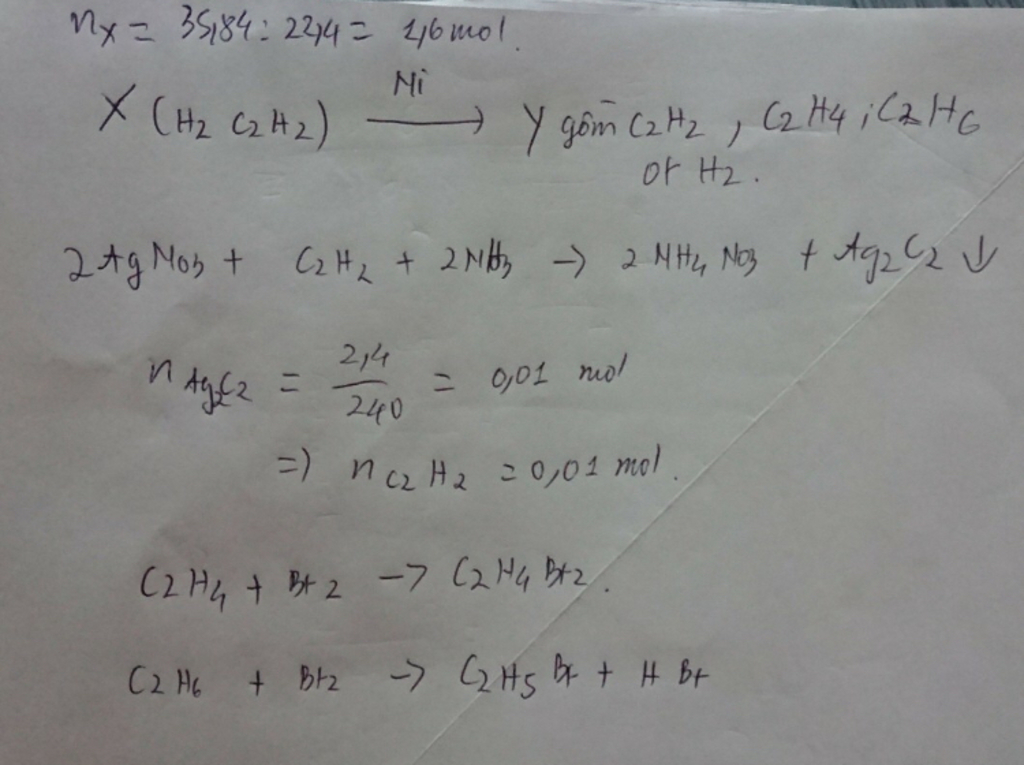 nX = 35,84 : 22,4 = 1,6 mol.
Ni
X (H2 C2H2) → Y gồm C2H2, C2H4; C2H6
or H2.
2AgNO3 + C2H2 + 2NH3 → 2NH4NO3 + Ag2C2 ↓
n Ag2C2 = 2,4 / 240 = 0,01 mol
=) n C2H2 = 0,01 mol.
C2H4 + Br2 → C2H4Br2.
C2H6 + Br2 → C2H5Br + HBr